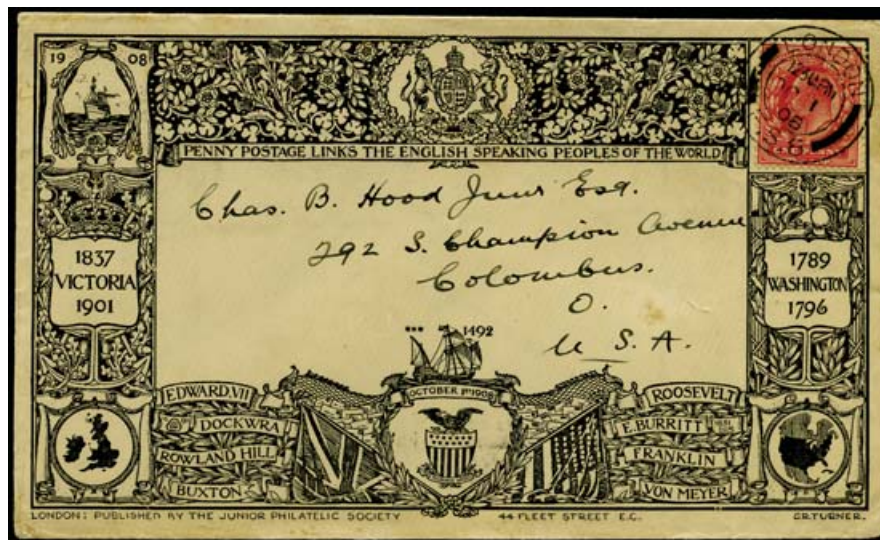 19 08
PENNY POSTAGE LINKS THE ENGLISH SPEAKING PEOPLES OF THE WORLD
LONDON
1
08
Chas. B. Hood Junr Esq.
292 S. Champion Avenue
Colombus.
O.
U S. A.
1837
VICTORIA
1901
1789
WASHINGTON
1796
1492
OCTOBER 1ST 1908
EDWARD.VII
DOCKWRA
ROWLAND HILL
BUXTON
ROOSEVELT
E.BURRITT
FRANKLIN
VON MEYER
LONDON: PUBLISHED BY THE JUNIOR PHILATELIC SOCIETY 44 FLEET STREET E.C. G.R.TURNER.